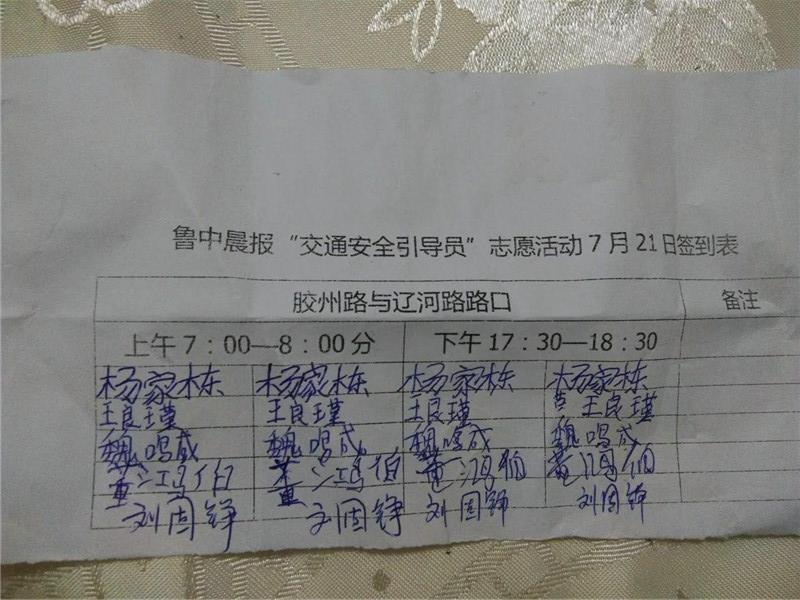 鲁中晨报“交通安全引导员”志愿活动7月21日签到表
胶州路与辽河路路口 备注
上午7：00—8：00分 下午17：30—18：30
杨家栋 杨家栋 杨家栋 杨家栋
王良瑾 王良瑾 王良瑾 王良瑾
魏鸣咸 魏鸣咸 魏鸣咸 魏鸣咸
董鸿伯 董鸿伯 董鸿伯 董鸿伯
刘固铮 刘固铮 刘固铮 刘固铮